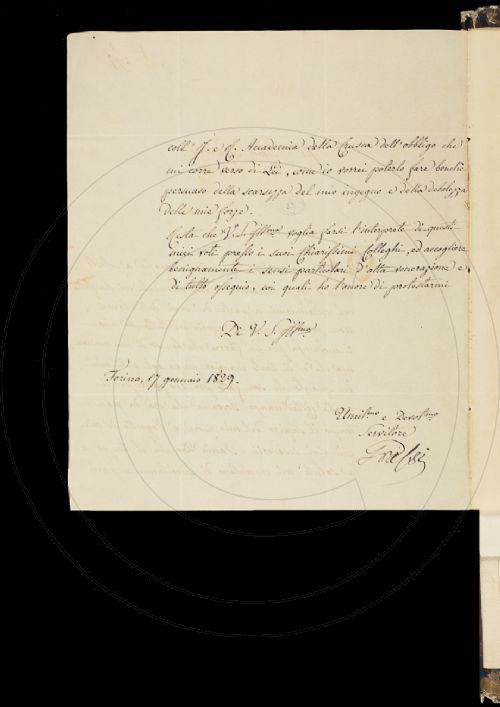 coll' I. e R. Accademia della Crusca dell'obbligo che
mi corre verso di Lei, come io vorrei poterlo fare benchè
persuaso della scarsezza del mio ingegno e della debolezza
delle mie forze.
Resta che V. S. Illma voglia farsi l'interprete di questi
miei voti presso i suoi Chiarissimi Colleghi, ed accogliere
benignamente i sensi particolari d'alta venerazione e
di tutto ossequio, coi quali ho l'onore di protestarmi
Di V. S. Illma
Torino, 17 gennaio 1829.
Umilmo e Devotmo
Servitore